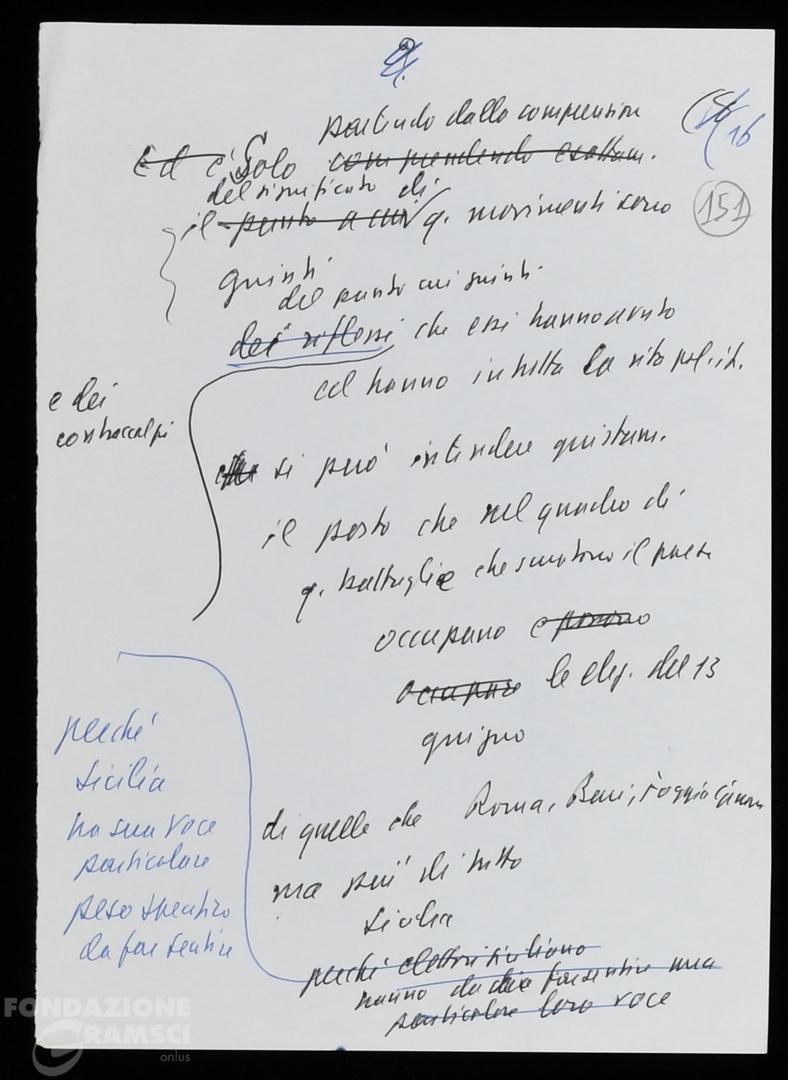 9.
partendo dalla comprension
(15/16
Ed è Solo comprendendo esattam.
del significato di
il punto a cui q. movimenti sono
151
giunti
del punto cui giunti.
dei riflessi che essi hanno avuto
ed hanno in tutta la vita pol. it.
e dei
contraccolpi
si può intendere giustam.
il posto che nel quadro di
q. battaglie che scuotono il paese
occupano e possono
occupare le elez. del 13
giugno
perché
Sicilia
ha sua voce
particolare
peso specifico
da far sentire
di quelle che Roma, Bari, Foggia, Genova
ma più di tutto
Sicilia
perché elettori siciliano
hanno da dire far sentire una
particolare loro voce
FONDAZIONE
GRAMSCI
onlus